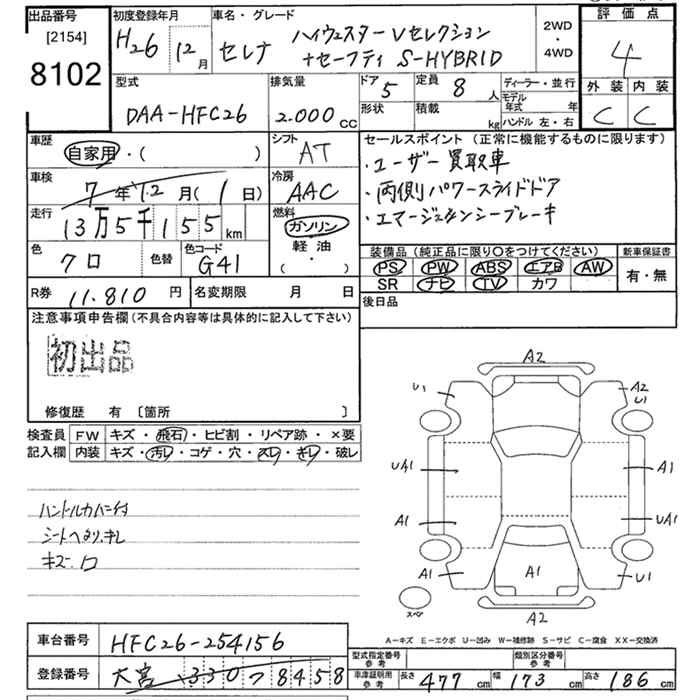 出品番号
[2154]
8102
初度登録年月
H26 12月
車名・グレード
セレナ ハイウェスター Vセレクション
+セーフティ S-HYBRID
2WD
・
4WD
評価点
4
外装 内装
C C
型式
DAA-HFC26
排気量
2.000cc
ドア 5
定員 8人
形状
積載 kg
ディーラー・並行
モデル年式 年
ハンドル 左・右
車歴
自家用・( )
シフト
AT
車検
7年12月(1日)
冷房
AAC
走行
13万5千155km
燃料
ガソリン
・
軽油
・
( )
色
クロ
色替
色コード
G41
R券 11.810円
名変期限 月 日
セールスポイント (正常に機能するものに限ります)
・ユーザー買取車
・両側パワースライドドア
・エマージェンシーブレーキ
装備品 (純正品に限り〇をつけてください)
新車保証書
PS PW ABS エアB AW
SR ナビ TV カワ
有・無
後日品
注意事項申告欄(不具合内容等は具体的に記入して下さい)
初出品
修復歴 有 [箇所 ]
検査員記入欄
FW キズ・飛石・ヒビ割・リペア跡・×要
内装 キズ・汚レ・コゲ・穴・スレ・キレ・破レ
ハンドルカバー付
シートヘタリ、キレ
A2
U1
A2
U1
UA1
A1
A1
UA1
A1
A1
U1
スペア
A2
A-キズ E-エクボ U-凹み W-補修跡 S-サビ C-腐食 XX-交換済
車台番号 HFC26-254156
登録番号 大宮 330 フ 8458
型式指定番号 参考
類別区分番号 参考
車庫証明用 参考
長さ 477cm 幅 173cm 高さ 186cm